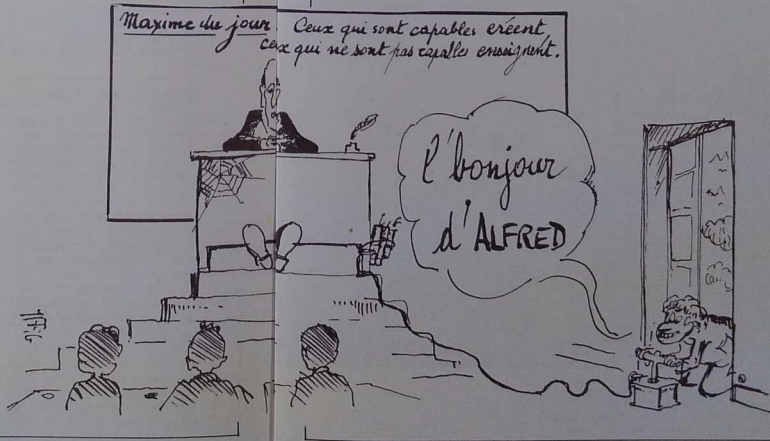 Maxime du jour Ceux qui sont capables créent,
ceux qui ne sont pas capables enseignent.
l'bonjour
d'ALFRED